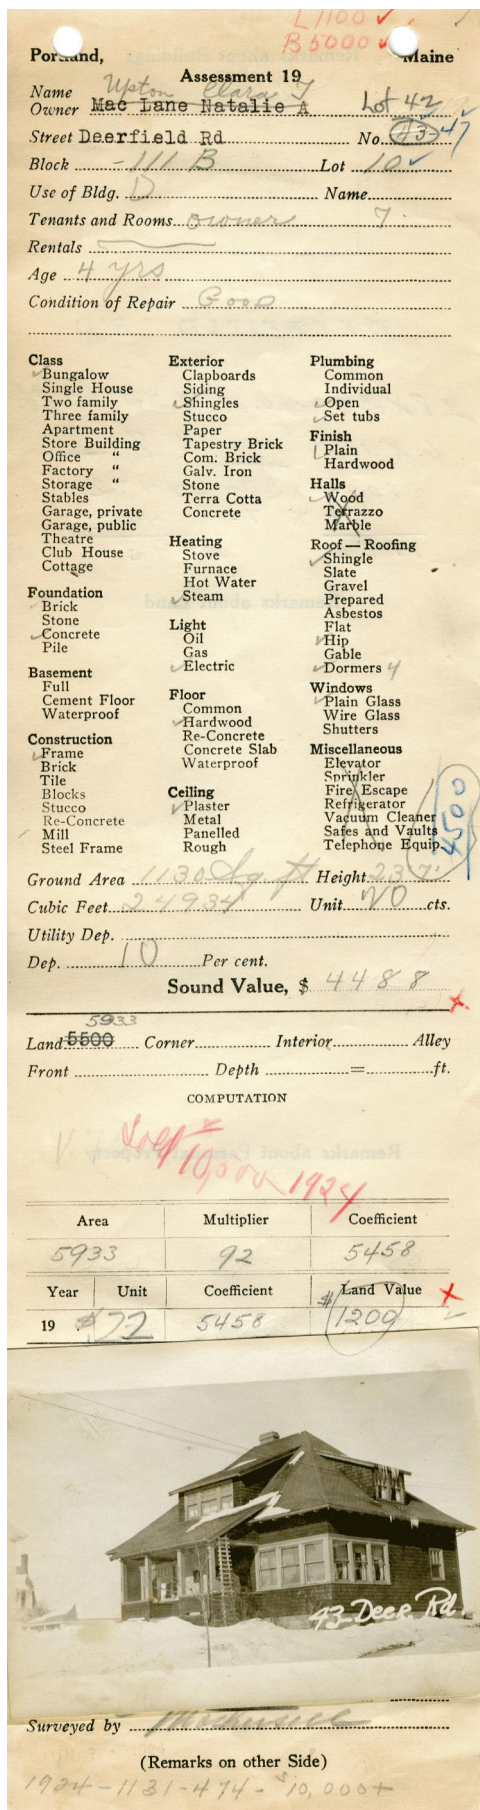 L 1100 ✓
B 5000 ✓
Portland, Maine
Assessment 19
Name Upton Clara T
Owner Mac Lane Natalie A Lot 42
Street Deerfield Rd No. 43-47
Block 111 B Lot 10 ✓
Use of Bldg. D Name
Tenants and Rooms owner 7
Rentals
Age 4 yrs
Condition of Repair Good
Class
✓ Bungalow
Single House
Two family
Three family
Apartment
Store Building
Office "
Factory "
Storage "
Stables
Garage, private
Garage, public
Theatre
Club House
Cottage
Foundation
✓ Brick
Stone
✓ Concrete
Pile
Basement
Full
Cement Floor
Waterproof
Construction
✓ Frame
Brick
Tile
Blocks
Stucco
Re-Concrete
Mill
Steel Frame
Exterior
Clapboards
Siding
✓ Shingles
Stucco
Paper
Tapestry Brick
Com. Brick
Galv. Iron
Stone
Terra Cotta
Concrete
Heating
Stove
Furnace
Hot Water
✓ Steam
Light
Oil
Gas
✓ Electric
Floor
Common
✓ Hardwood
Re-Concrete
Concrete Slab
Waterproof
Ceiling
✓ Plaster
Metal
Panelled
Rough
Plumbing
Common
Individual
✓ Open
✓ Set tubs
Finish
Plain
Hardwood
Halls
✓ Wood
Terrazzo
Marble
Roof — Roofing
✓ Shingle
Slate
Gravel
Prepared
Asbestos
Flat
✓ Hip
Gable
✓ Dormers 4
Windows
✓ Plain Glass
Wire Glass
Shutters
Miscellaneous
Elevator
Sprinkler
Fire Escape
Refrigerator
Vacuum Cleaner
Safes and Vaults
Telephone Equip.
4500
Ground Area 1130 Sq ft Height 23'7"
Cubic Feet 24934 Unit 20 cts.
Utility Dep.
Dep. 10 Per cent.
Sound Value, $ 4488
5933
Land 5500 Corner Interior Alley
Front Depth = ft.
COMPUTATION
10,500 1924
Area Multiplier Coefficient
5933 92 5458
Year Unit Coefficient Land Value
19 $ 22 5458 $ 1200
43 Deer. Rd.
Surveyed by
(Remarks on other Side)
1924-1131-474- $10,000+